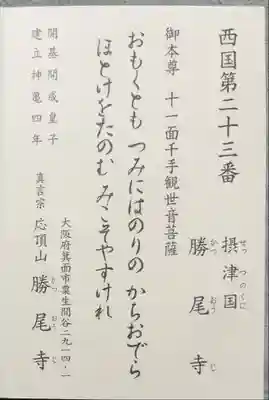 西国第二十三番
摂津国
せっつのくに
勝尾寺
かつおうじ
御本尊 十一面千手観世音菩薩
おもくとも つみにはのりの からおでら
ほとけをたのむ みこそやすけれ
大阪府箕面市粟生間谷二九一四・一
真言宗 応頂山 勝尾寺
かつおうじ
開基開成皇子
建立神亀四年